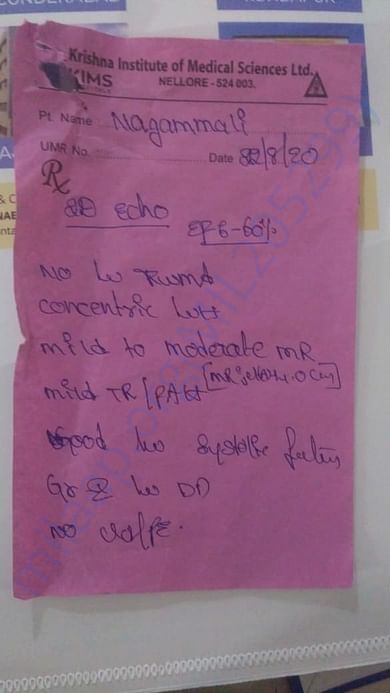 Krishna Institute of Medical Sciences Ltd.
KIMS
NELLORE - 524 003.
Pt. Name Nagammali
UMR No. Date 22/8/20
Rx
2D echo
60%
No LV RWMA
concentric LVH
mild to moderate MR
mild TR / PAH
Good LV systolic
Gr 2 LV DD
NO